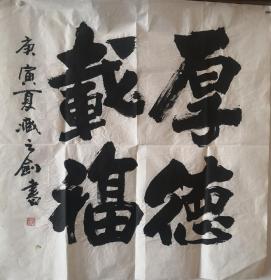 厚德
載福
庚寅夏臧之劍書